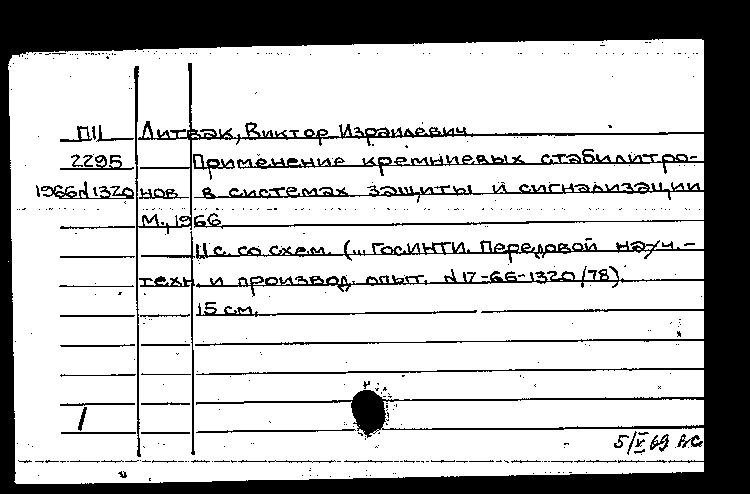 П11 Литвак, Виктор Израилевич.
2295 Применение кремниевых стабилитро-
1966 N 1320 нов в системах защиты и сигнализации
М., 1966
11 с. со схем. (... ГОСИНТИ. Передовой науч.-
техн. и производ. опыт. N 17-66-1320/78).
15 см.
/
5/V 69